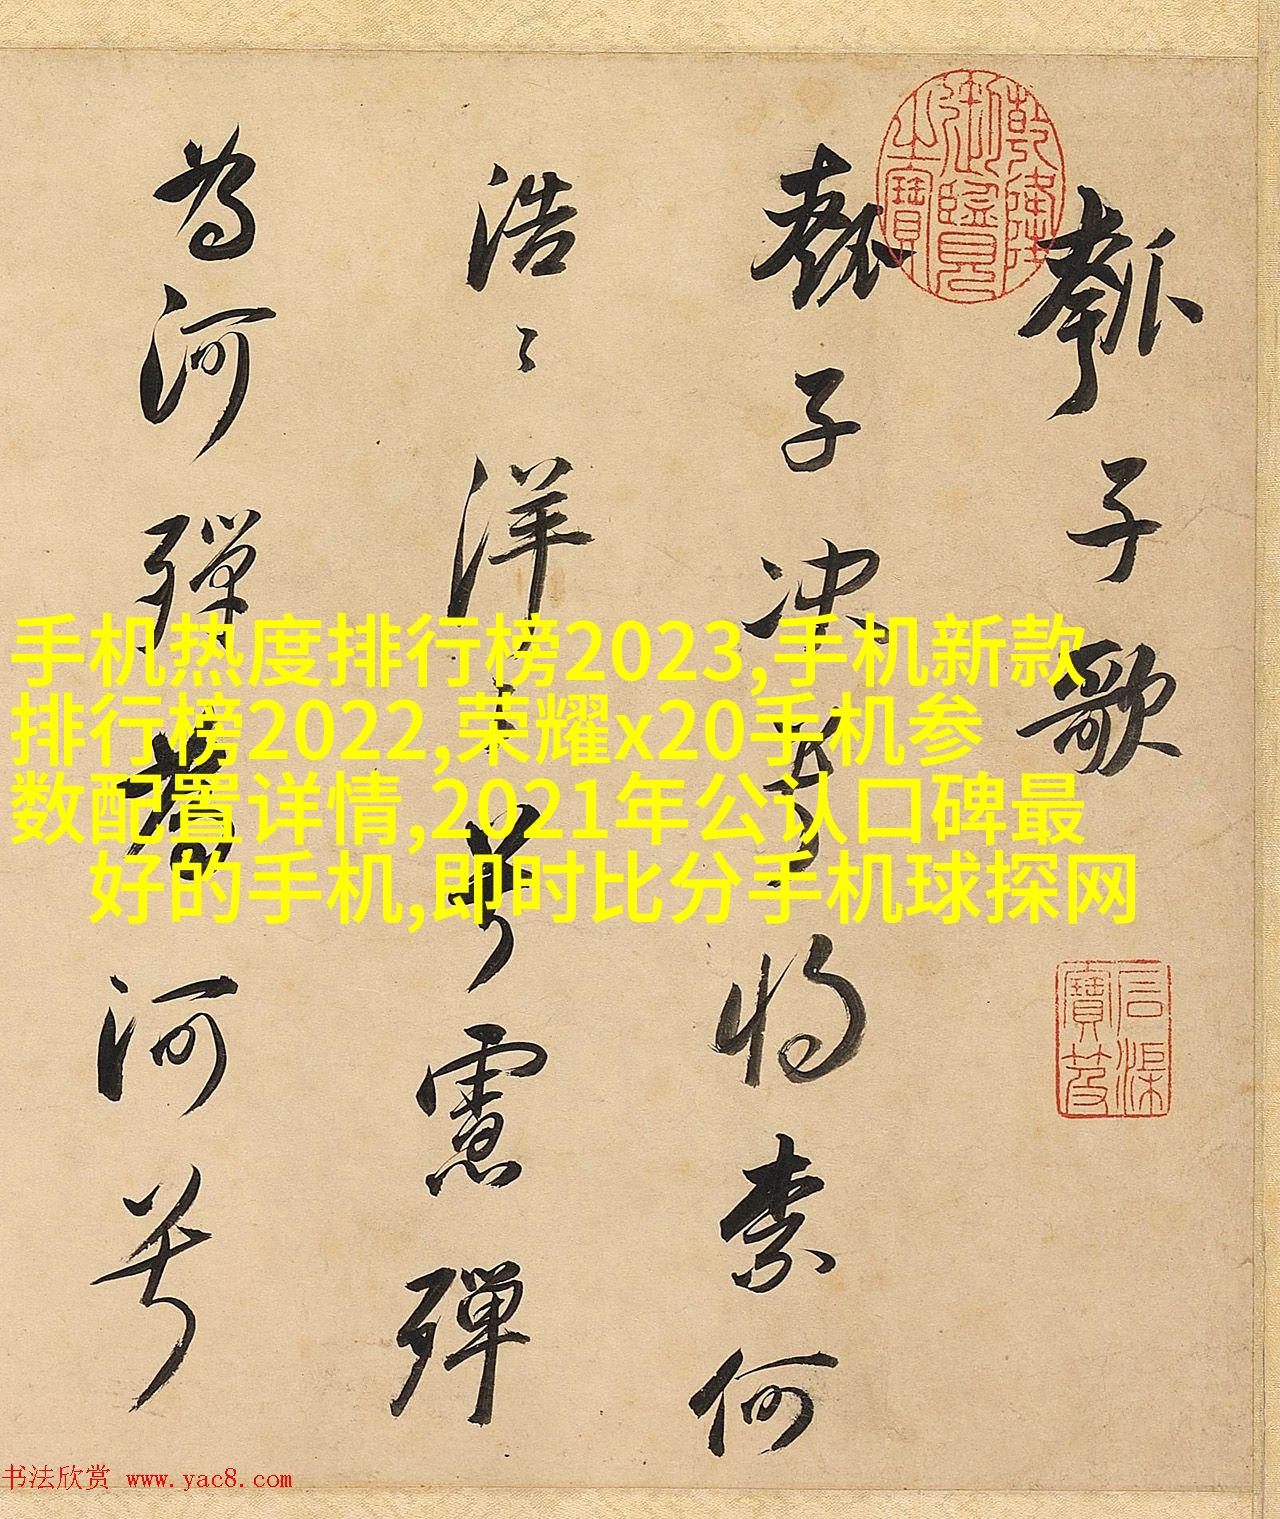 瓠子歌
瓠子决兮将柰何
浩〻洋〻兮慮殫
為河殫為河兮
乾隆御覽之寶
石渠寶笈
手机热度排行榜2023,手机新款
排行榜2022,荣耀x20手机参
数配置详情,2021年公认口碑最
好的手机,即时比分手机球探网
书法欣赏 www.yac8.com